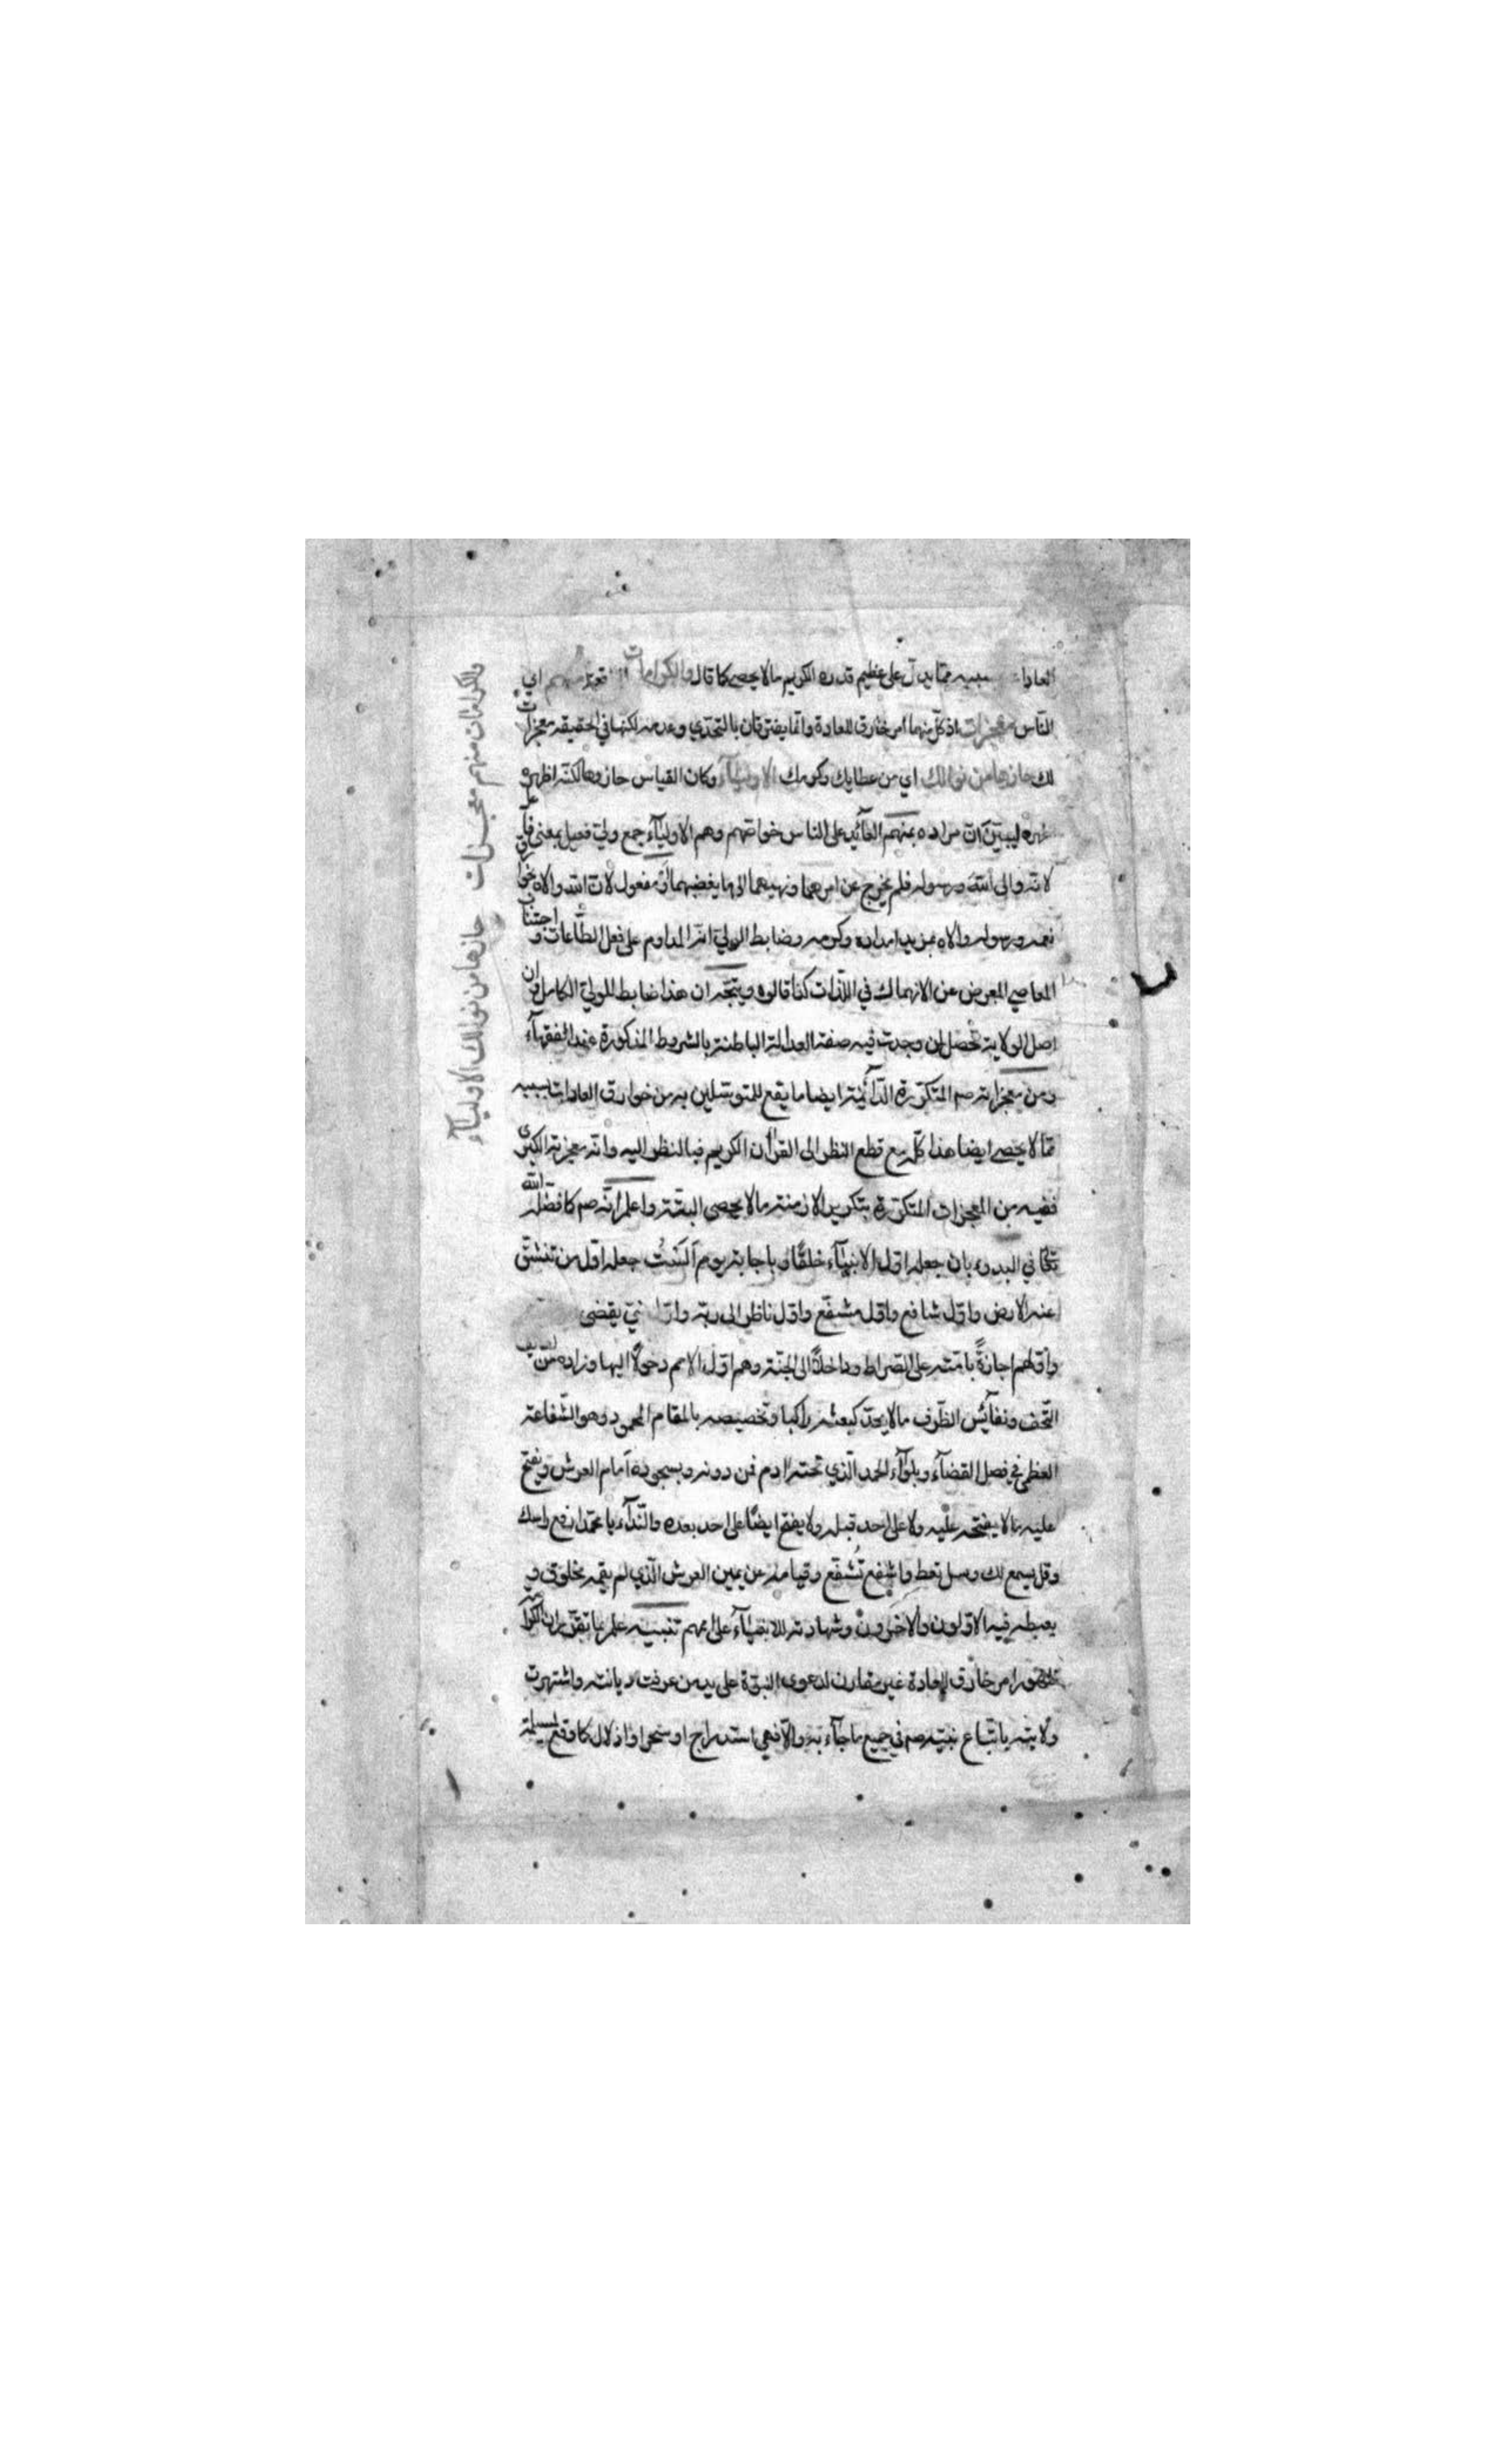 العادات بسببه مما يدل على عظيم قدره الكريم ما لا يحصى كما قال والكرامات منهم اي
الناس معجزات اذ كل منهما امر خارق للعادة وانما يفترقان بالتحدي وعدمه لكنها في الحقيقة معجزات
لك حازها من نوالك اي من عطاياك وكرمك الاولياء وكان القياس حازوها لكنه اظهره
ليبين ان مراده بمنهم العائد على الناس خواصهم وهم الاولياء جمع ولي فعيل بمعنى فاعل
لانه والى الله ورسوله فلم يخرج عن امرهما ونهيهما الى ما يغضبهما او مفعول لان الله والاه
ورسوله والاه بمزيد امداده وكرمه وضابط الولي انه المداوم على فعل الطاعات و اجتناب
المعاصي المعرض عن الانهماك في اللذات كذا قالوه ويتجه ان هذا ضابط للولي الكامل وان
اصل الولاية تحصل لمن وجدت فيه صفة العدالة الباطنة بالشروط المذكورة عند الفقهاء
ومن معجزاته صم المتكررة الدائمة ايضا ما يقع للمتوسلين به من خوارق العادات بسببه
مما لا يحصى ايضا هذا كله مع قطع النظر الى القرآن الكريم فبالنظر اليه وانه معجزته الكبرى
ففيه من المعجزات المتكررة بتكرير الازمنة ما لا يحصى البتة واعلم انه صم كما فضله الله
تعالى في البدء بان جعله اول الانبياء خلقا وباجابته يوم الست جعله اول من تنشق
عنه الارض واول شافع واول مشفع واول ناظر الى ربه يقضى
واولهم اجازة بامته على الصراط وداخلا الى الجنة وهم اول الامم دخولا اليها وزاده من
التحف ونفائس الظرف ما لا يحد كبعثه راكبا وتخصيصه بالمقام المحمود وهو الشفاعة
العظمى في فصل القضاء وبلواء الحمد الذي تحته ادم فمن دونه وبسجوده امام العرش ويفتح
عليه ما لا يفتحه عليه ولا على احد قبله ولا يفتح ايضا على احد بعده والنداء يا محمد ارفع راسك
وقل يسمع لك وسل تعط واشفع تشفع وقيامه عن يمين العرش الذي لم يقمه مخلوق و
يغبطه فيه الاولون والاخرون وشهادته للانبياء على اممهم تنبيه علم مما تقرر ان
ظهور امر خارق للعادة غير مقارن لدعوى النبوة على يد من عرفت ديانته واشتهرت
ولايته باتباع نبيه صم في جميع ما جاء به والا فهي استدراج او سحر او اذلال كما وقع لمسيلمة
والكرامات منهم معجزات حازها من نوالك الاولياء